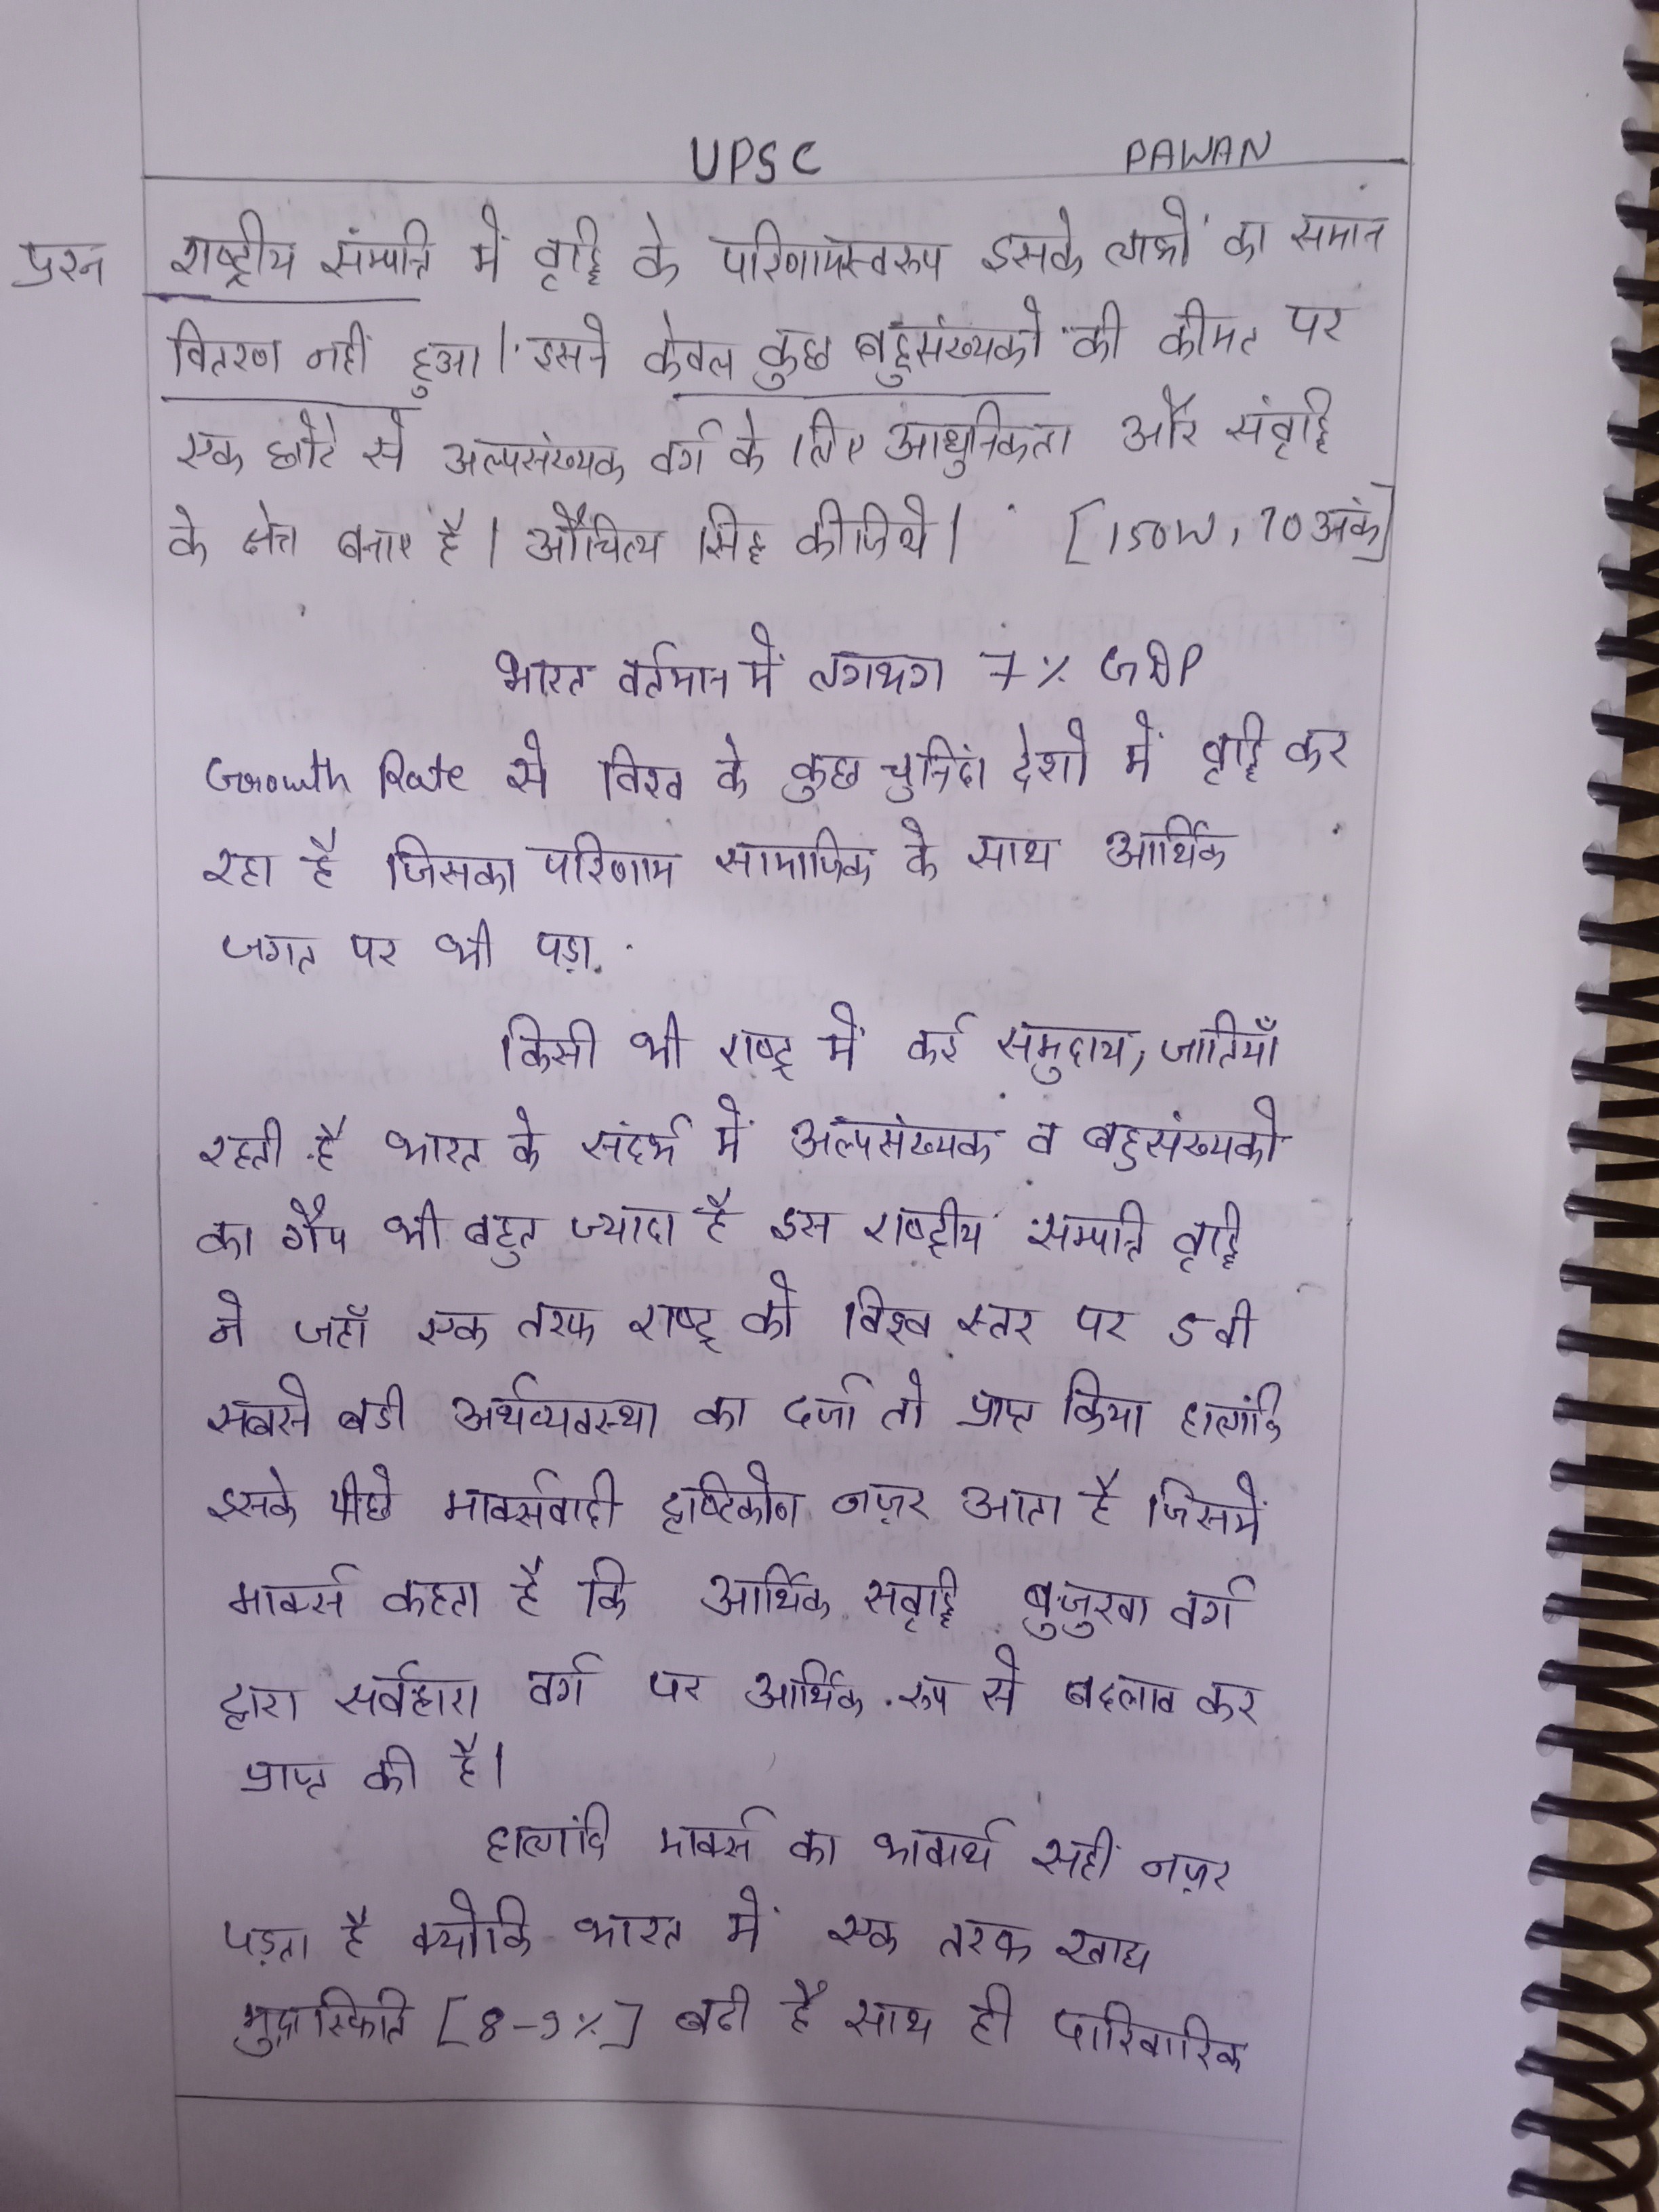 UPSC PAWAN
प्रश्न राष्ट्रीय संम्पत्ति में वृद्धि के परिणामस्वरूप इसके लाभों का समान
वितरण नहीं हुआ। इसने केवल कुछ बहुसंख्यको की कीमत पर
एक छोटे से अल्पसंख्यक वर्ग के लिए आधुनिकता और संवृद्धि
के क्षेत्र बनाए है। औचित्य सिद्ध कीजिये। [150W, 10 अंक]
भारत वर्तमान में लगभग 7% GDP
Growth Rate से विश्व के कुछ चुनिंदा देशो में वृद्धि कर
रहा है जिसका परिणाम सामाजिक के साथ आर्थिक
जगत पर भी पड़ा.
किसी भी राष्ट्र में कई समुदाय, जातियाँ
रहती है भारत के संदर्भ में अल्पसंख्यक व बहुसंख्यको
का गैप भी बहुत ज्यादा है इस राष्ट्रीय सम्पत्ति वृद्धि
ने जहाँ एक तरफ राष्ट्र को विश्व स्तर पर 5वी
सबसे बडी अर्थव्यवस्था का दर्जा तो प्राप्त किया हालांकि
इसके पीछे मार्क्सवादी दृष्टिकोण नज़र आता है जिसमें
मार्क्स कहता है कि आर्थिक सवृद्धि बुजुरवा वर्ग
द्वारा सर्वहारा वर्ग पर आर्थिक रूप से बदलाव कर
प्राप्त की है।
हालांकि मार्क्स का भावार्थ सहीं नज़र
पड़ता है क्योकि भारत में एक तरफ खाद्य
मुद्रास्फिति [8-9%] बढी है साथ ही पारिवारिक